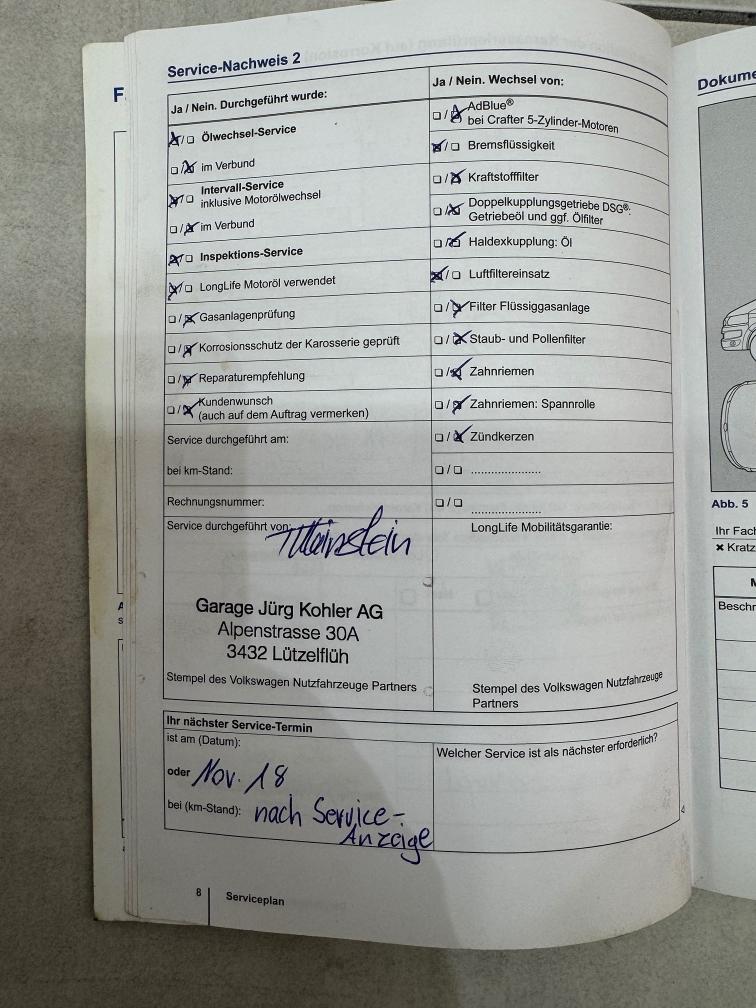 Service-Nachweis 2
Ja / Nein. Durchgeführt wurde:
Ölwechsel-Service
im Verbund
Intervall-Service
inklusive Motorölwechsel
im Verbund
Inspektions-Service
LongLife Motoröl verwendet
Gasanlagenprüfung
Korrosionsschutz der Karosserie geprüft
Reparaturempfehlung
Kundenwunsch
(auch auf dem Auftrag vermerken)
Service durchgeführt am:
bei km-Stand:
Rechnungsnummer:
Service durchgeführt von:
Garage Jürg Kohler AG
Alpenstrasse 30A
3432 Lützelflüh
Stempel des Volkswagen Nutzfahrzeuge Partners
Ja / Nein. Wechsel von:
AdBlue®
bei Crafter 5-Zylinder-Motoren
Bremsflüssigkeit
Kraftstofffilter
Doppelkupplungsgetriebe DSG®:
Getriebeöl und ggf. Ölfilter
Haldexkupplung: Öl
Luftfiltereinsatz
Filter Flüssiggasanlage
Staub- und Pollenfilter
Zahnriemen
Zahnriemen: Spannrolle
Zündkerzen
LongLife Mobilitätsgarantie:
Stempel des Volkswagen Nutzfahrzeuge
Partners
Ihr nächster Service-Termin
ist am (Datum):
oder Nov. 18
bei (km-Stand): nach Service-
Anzeige
Welcher Service ist als nächster erforderlich?
8 Serviceplan
Dokume
Abb. 5
Ihr Fach
Kratz
Beschr